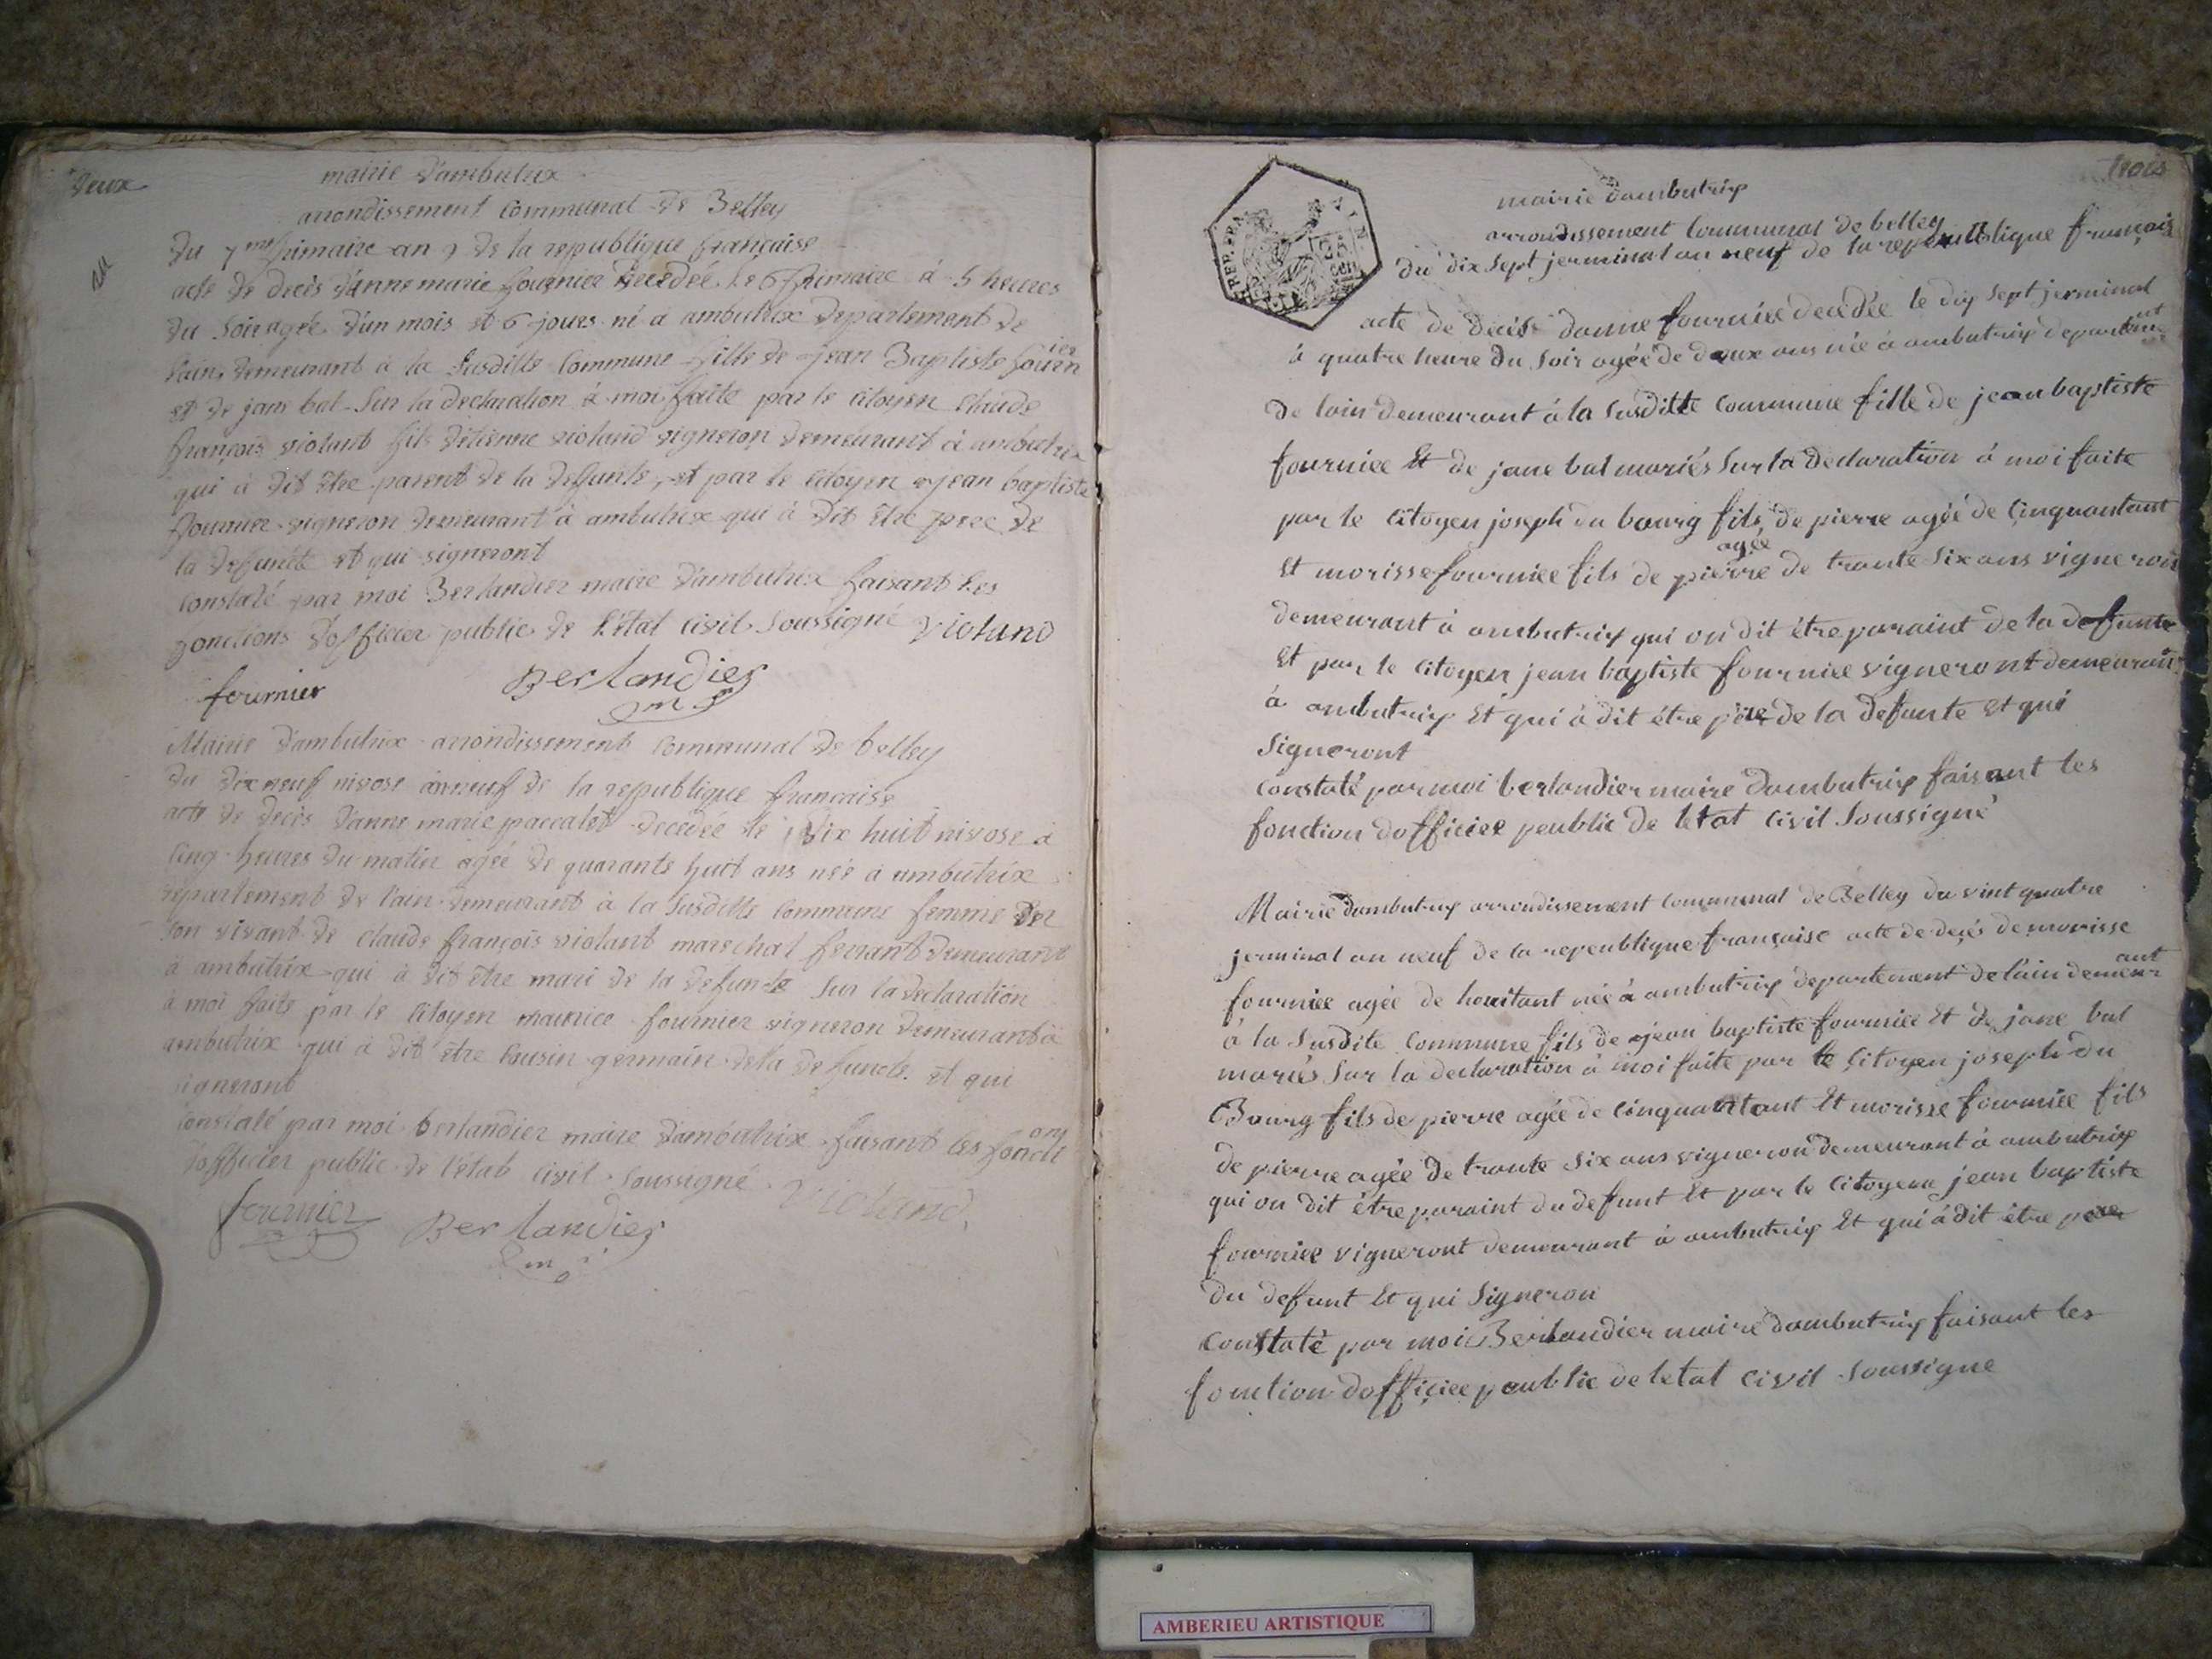 Deux
mairie d'ambutrix
arrondissement Communal de Belley
Du 7me frimaire an 9 de la republique française
acte de decès d'anne marie fournier decedée le 6 frimaire à 5 heures
du soir agée d'un mois et 6 jours né a ambutrix departement de
l'ain demeurant à la susditte Commune fille de jean Baptiste fournier
et de jane bal sur la declaration à moi faite par le citoyen claude
françois violand fils d'étienne violand vigneron demeurant à ambutrix
qui à dit être parent de la defunte, et par le citoyen jean baptiste
fournier vigneron demeurant à ambutrix qui à dit être pere de
la defuncte et qui signeront
Constaté par moi Berlandier maire d'ambutrix faisant les
fonctions d'officier public de l'état civil soussigné violand
fournier Berlandier
m
Mairie d'ambutrix arrondissement Communal de belley
du dix neuf nivose an neuf de la republique française
acte de decès d'anne marie paccalet decedée le dix huit nivose à
cinq heures du matin agée de quarante huit ans née a ambutrix
departement de l'ain demeurant à la susditte Commune femme
son vivant de claude françois violant marechal ferrant demeurant
à ambutrix qui à dit être mari de la defunte sur la declaration
à moi faite par le citoyen maurice fournier vigneron demeurant à
ambutrix qui à dit être cousin germain de la defuncte et qui
signeront
Constaté par moi berlandier maire d'ambutrix faisant les fonctions
d'officier public de l'état civil soussigné violand
fournier Berlandier
m
trois
mairie dambutrix
arrondissement Communal de belley
du dix sept jerminal an neuf de la republique français
acte de decès danne fourniee decedée le dix sept jerminal
à quatre heure du soir agée de deux ans née à ambutrix departement
de lain demeurant à la susditte Commune fille de jean baptiste
fourniee Et de jane bal mariés sur la declaration à moi faite
par le citoyen joseph du bourg fils de pierre agée de cinquantant
Et morisse fourniee fils de pierre agée de trante six ans vigneron
demeurant à ambutrix qui on dit être paraint de la defunte
Et par le citoyen jean baptiste fourniee vigneront demeurant
à ambutrix Et qui à dit être père de la defunte et qui
signeront
constaté par moi berlandier maire dambutrix faisant les
fonction dofficiee peublic de letat civil soussigné
Mairie dambutrix arrondissement communal de Belley du vint quatre
jerminal an neuf de la republique française acte de decés de morisse
fourniee agée de houitant née à ambutrix departement de lain demeurant
à la susdite Commune fils de jean baptiste fourniee Et de jane bal
mariés sur la declaration à moi faite par le citoyen joseph du
Bourg fils de pierre agée de cinquantant Et morisse fourniee fils
de pierre agée de trante six ans vigneron demeurant à ambutrix
qui on dit être paraint du defunt Et par le citoyen jean baptiste
fourniee vigneront demeurant à ambutrix Et qui à dit être pere
du defunt Et qui signeron
constaté par moi Berlandier maire dambutrix faisant les
fonction dofficiee peublic de letat civil soussigne
AMBERIEU ARTISTIQUE